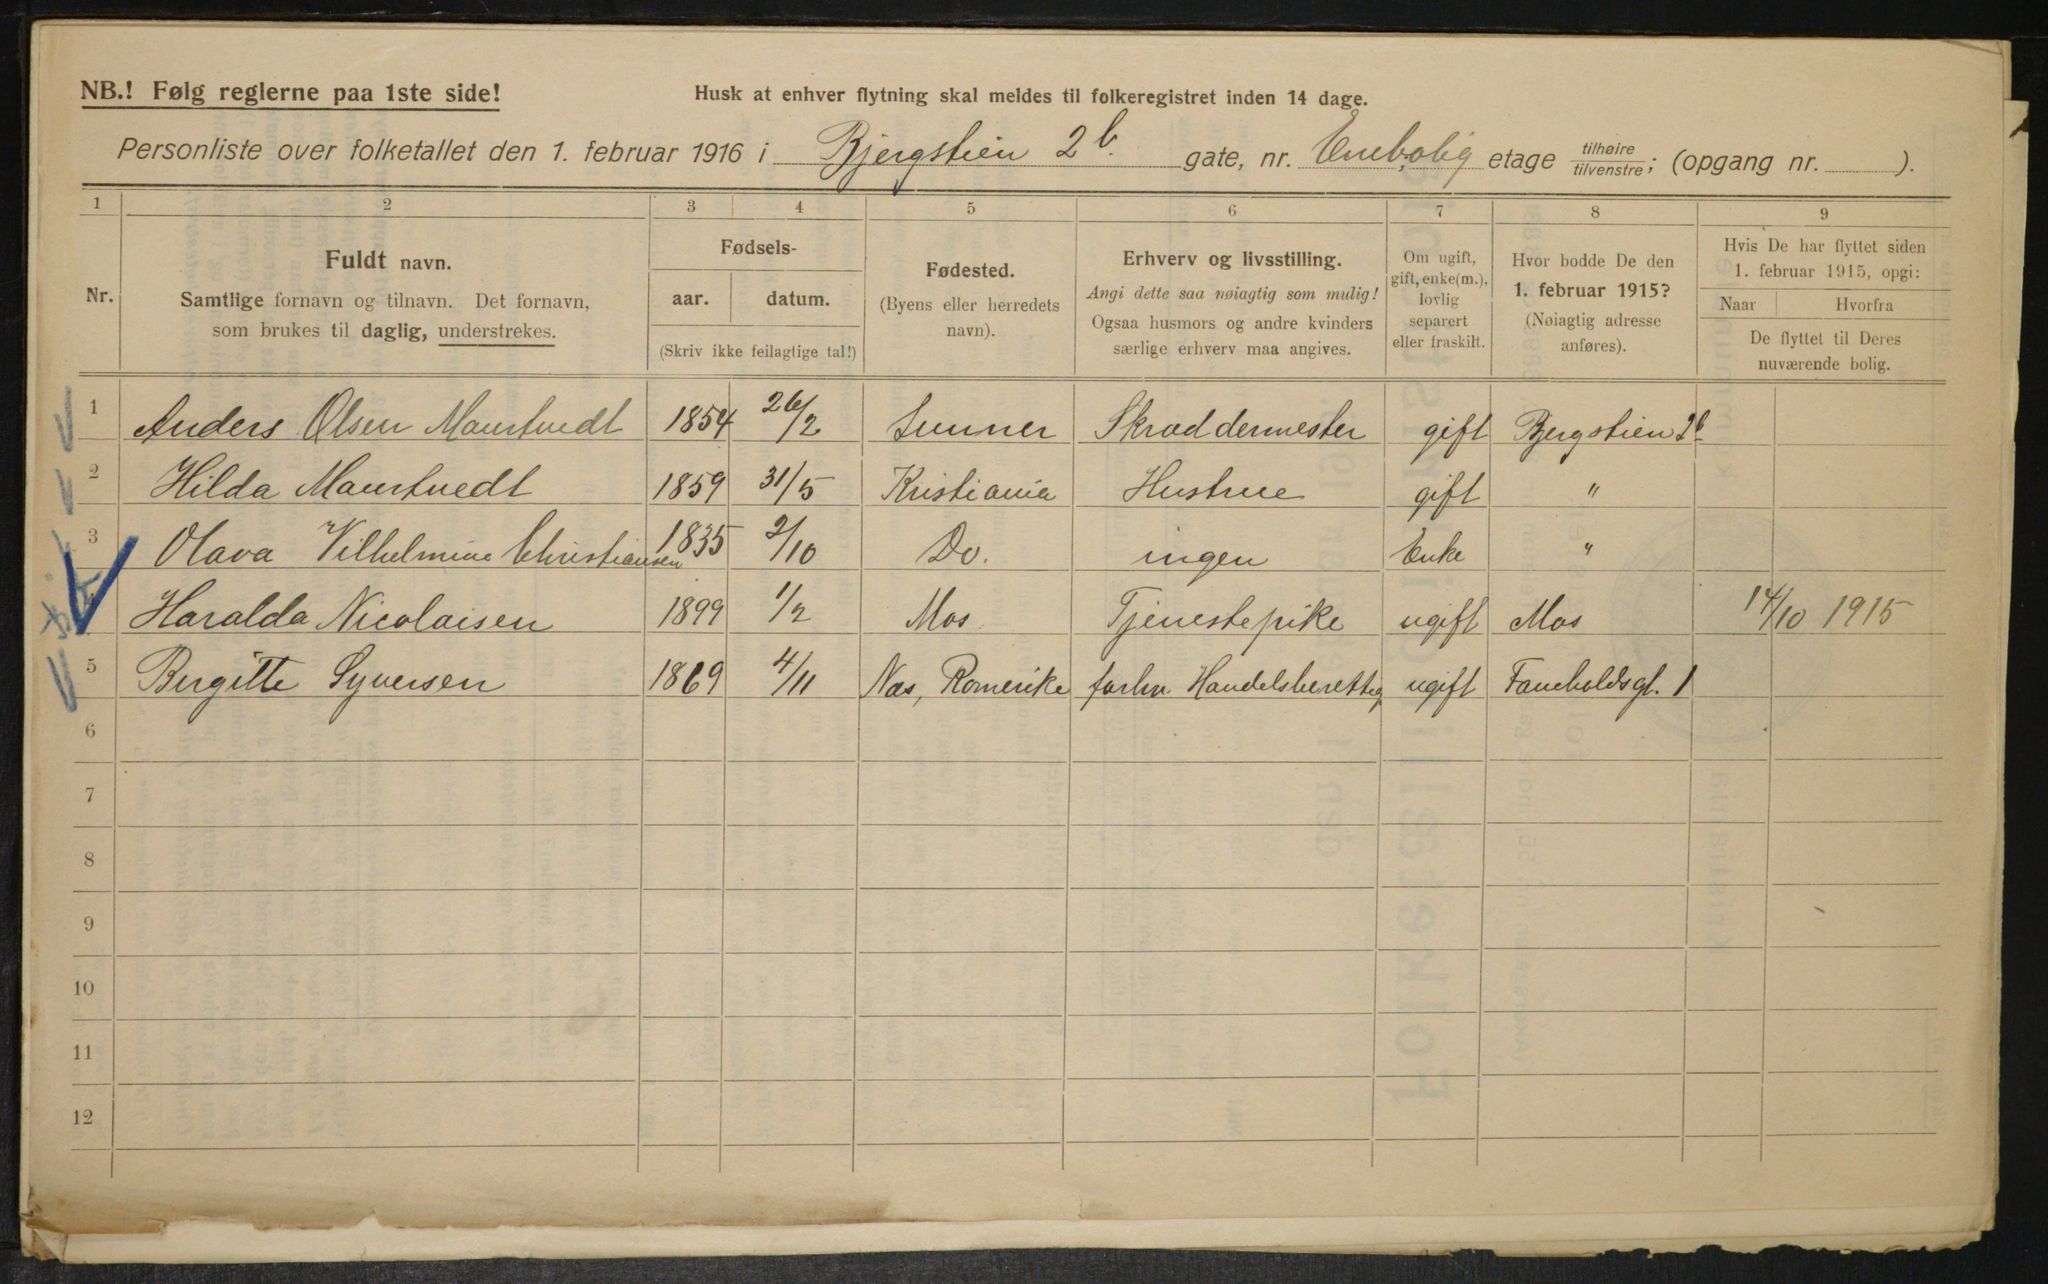 NB.! Følg reglerne paa 1ste side!
Husk at enhver flytning skal meldes til folkeregistret inden 14 dage.
Personliste over folketallet den 1. februar 1916 i Bjergstien 2b. gate, nr. Enebolig etage tilhøire/tilvenstre; (opgang nr. ).
1 2 3 4 5 6 7 8 9
Nr.
Fuldt navn.
Samtlige fornavn og tilnavn. Det fornavn,
som brukes til daglig, understrekes.
Fødsels-
aar. datum.
(Skriv ikke feilagtige tal!)
Fødested.
(Byens eller herredets
navn).
Erhverv og livsstilling.
Angi dette saa nøiagtig som mulig!
Ogsaa husmors og andre kvinders
særlige erhverv maa angives.
Om ugift,
gift, enke(m.),
lovlig
separert
eller fraskilt.
Hvor bodde De den
1. februar 1915?
(Nøiagtig adresse
anføres).
Hvis De har flyttet siden
1. februar 1915, opgi:
Naar Hvorfra
De flyttet til Deres
nuværende bolig.
1 Anders Olsen Maurtvedt 1854 26/2 Lunner Skræddermester gift Bjergstien 2b
2 Hilda Maurtvedt 1859 31/5 Kristiania Hustrue gift "
3 Olava Vilhelmine Christiansen 1835 2/10 Do. ingen Enke "
Haralda Nicolaisen 1899 1/2 Mos Tjenestepike ugift Mos 14/10 1915
5 Birgitte Syversen 1869 4/11 Næs, Romerike forhv. Handelsberettig ugift Faucholdsgt. 1
6
7
8
9
10
11
12